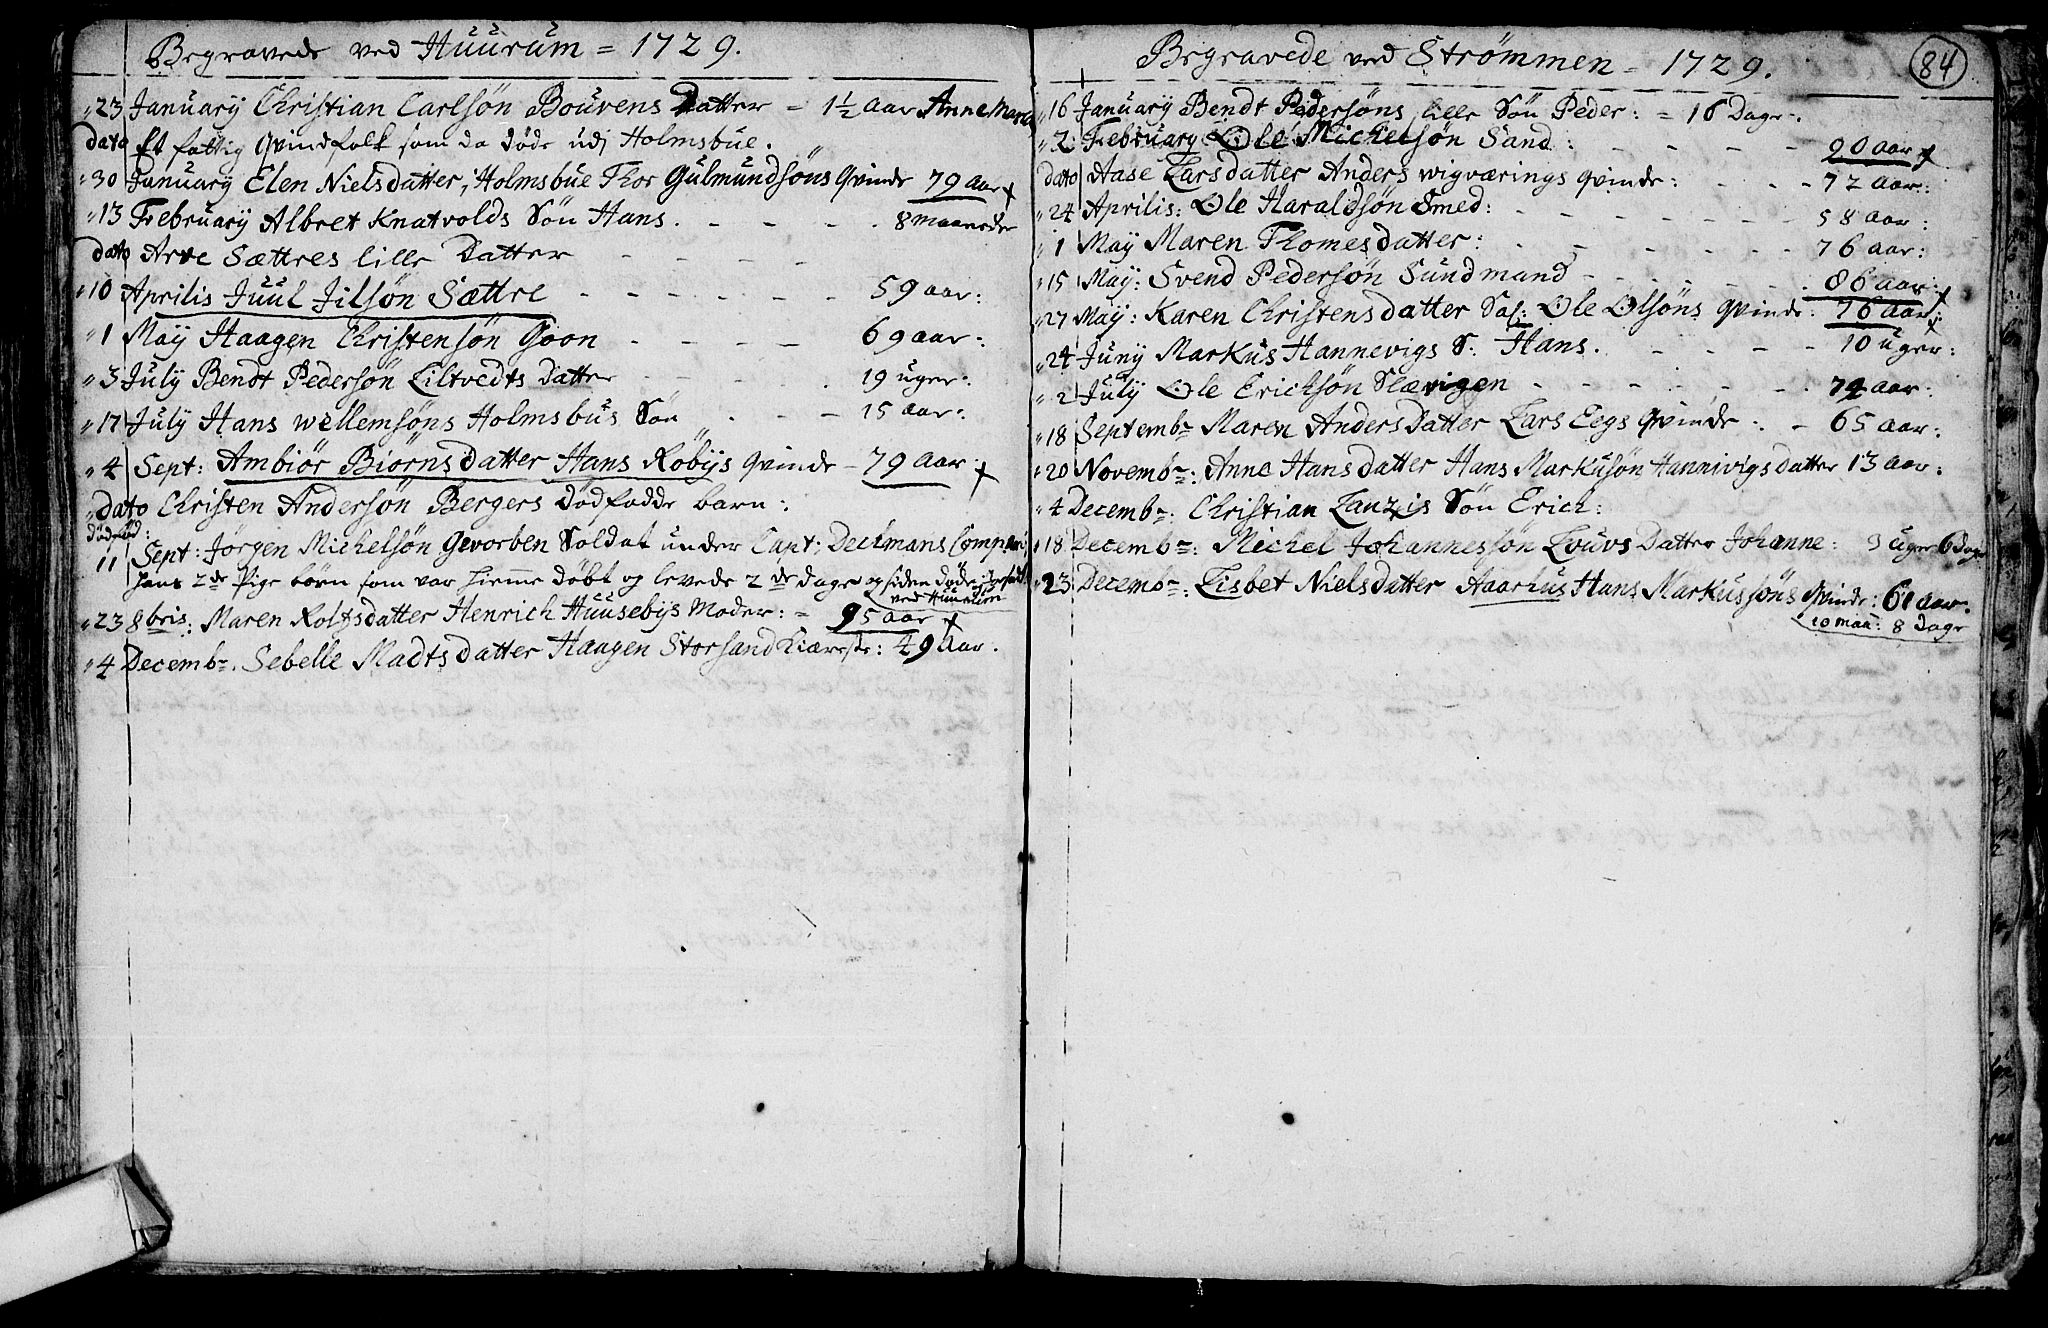 Begravede ved Huurum = 1729.
23 January Christian Carlsön Bouvens Datter - 1½ aar Anne Maria
dato Et fattig Qvindfolk som da döde udj Holmsbue.
30 January Elen Nielsdatter, Holmsbue Thor Gulmundsöns Qvinde 79 aar +
13 February Albret Knatvolds Sön Hans. - - - 8 maaneder
dato Arve Sættres lille Datter - - - -
10 Aprilis Juul Jilsön Sættre - - - - - - 59 aar:
1 Maÿ Haagen Christensön Goon - - - - 69 aar:
3 July Bendt Pedersön Liltvedts Datter - - - - 19 uger:
17 July Hans Wellemsöns Holmsbus Sön - - - 15 aar:
4 Sept: Ambiör Biörnsdatter Hans Röbÿs Qvinde - 79 aar: +
dato Christen Andersön Bergers Dödfödde barn:
dödfød:
11 Sept: Jörgen Michelsön Gevorben Soldat under Capt: Deckmans Comp:
hans 2de Pige börn som var hiemme döbt og levede 2de dage og siden döde
ved Huurum
23 8bris: Maren Rolfsdatter Henrich Huusebÿs Moder: = 95 aar +
4 Decembr. Sebelle Madtsdatter Haagen Storsand Kiæreste: 49 Aar.
Begravede ved Strömmen = 1729.
84
16 January Bendt Pedersöns lille Sön Peder: = 16 Dage.
2 February Ole Michelsön Sand: - - - - 90 aar +
dato Aase Larsdatter Anders Wigværings Qvinde: - - - 72 aar:
24 Aprilis: Ole Haraldsön Smed: - - - - - - 58 aar:
1 Maÿ Maren Thomesdatter: - - - - - - 76 aar:
15 Maÿ: Svend Pedersön Sundmand - - - - - 86 aar: +
27 Maÿ: Karen Christensdatter Sal: Ole Olsöns Qvinde: 76 Aar: +
24 Juny Markus Hannevigs S: Hans. - - - - 10 uger:
2 July Ole Ericksön Slævigen - - - - - - 72 aar:
18 Septembr Maren Andersdatter Lars Eegs Qvinde: - 65 aar:
20 Novembr: Anne Hansdatter Hans Markusön Hannivigs datter 13 aar:
4 Decembr: Christian Lanzis Sön Erich:
18 Decembr: Michel Johannessön Louvs Datter Johanne: 3 uger 6 dage
23 Decembr: Lisbet Nielsdatter Aaarhus Hans Markussöns Qvinde: 61 aar.
10 maa: 8 Dage